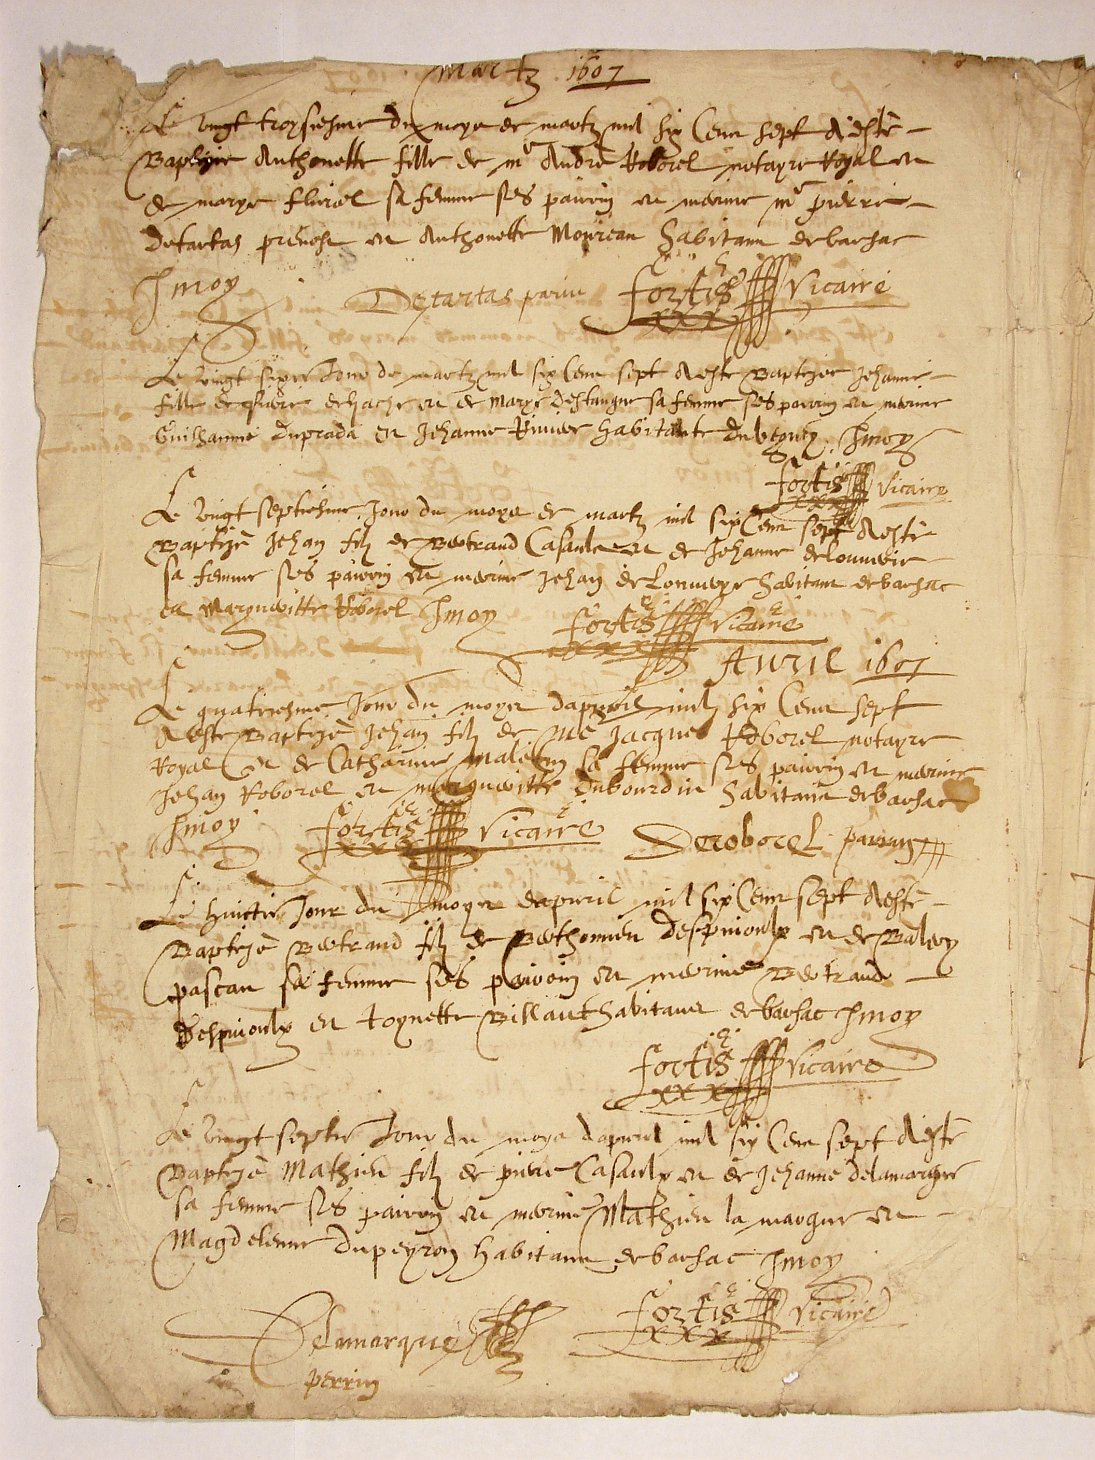 Martz 1607
Le vingt troysiesme du moys de martz mil six cens sept a esté
Baptizée Anthonette fille de mr André Roborel notayre Royal et
de marye fluriel sa femme ses pairin et merine mr pierre
Detartas prevost et Anthonette Moureau habitans de barsac
J moy Detartas parin Fortis vicaire
Le vingt sixie Jour de martz mil six cens sept a este Baptizee Jehanne
fille de de et de marye destangue sa femme ses pairin et merine
Guilhaume duprada et Jehanne Rivier habitante du J moy
Fortis vicaire
Le vingt septiesme Jour du moys de martz mil six cens sept a esté
Baptizé Jehan filz de Bertrand Casaulx et de Jehanne delouweire
sa femme ses pairin et merine Jehan de Louweyre habitans de barsac
et Margueritte Roborel J moy Fortis vicaire
Avril 1607
Le quatriesme Jour du moys d'apvril mil six cens sept
a este Baptizé Jehan filz de me Jacques Roborel notayre
Royal et de Catharine malescin sa femme ses pairin et merine
Jehan Roborel et margueritte Dubourdiu habitans de barsac
J moy Fortis vicaire Deroborel parrayn
Le huictie Jour du moys dapvril mil six cens sept a esté
Baptizé Bertrand filz de Berthomieu Despuioulx et de Balezy
pascau sa femme ses pairin et merine Bertrand
Despuioulx et toynette Billaut habitans de barsac J moy
Fortis vicaire
Le vingt septie Jour du moys dapvril mil six cens sept a esté
Baptizé Mathieu filz de pierre Casaulx et de Jehanne Delamargue
sa femme ses pairin et merine Mathieu la margue et
Magdelenne Dupeyron habitans de barsac J moy
Delamarque Fortis vicaire
perrin